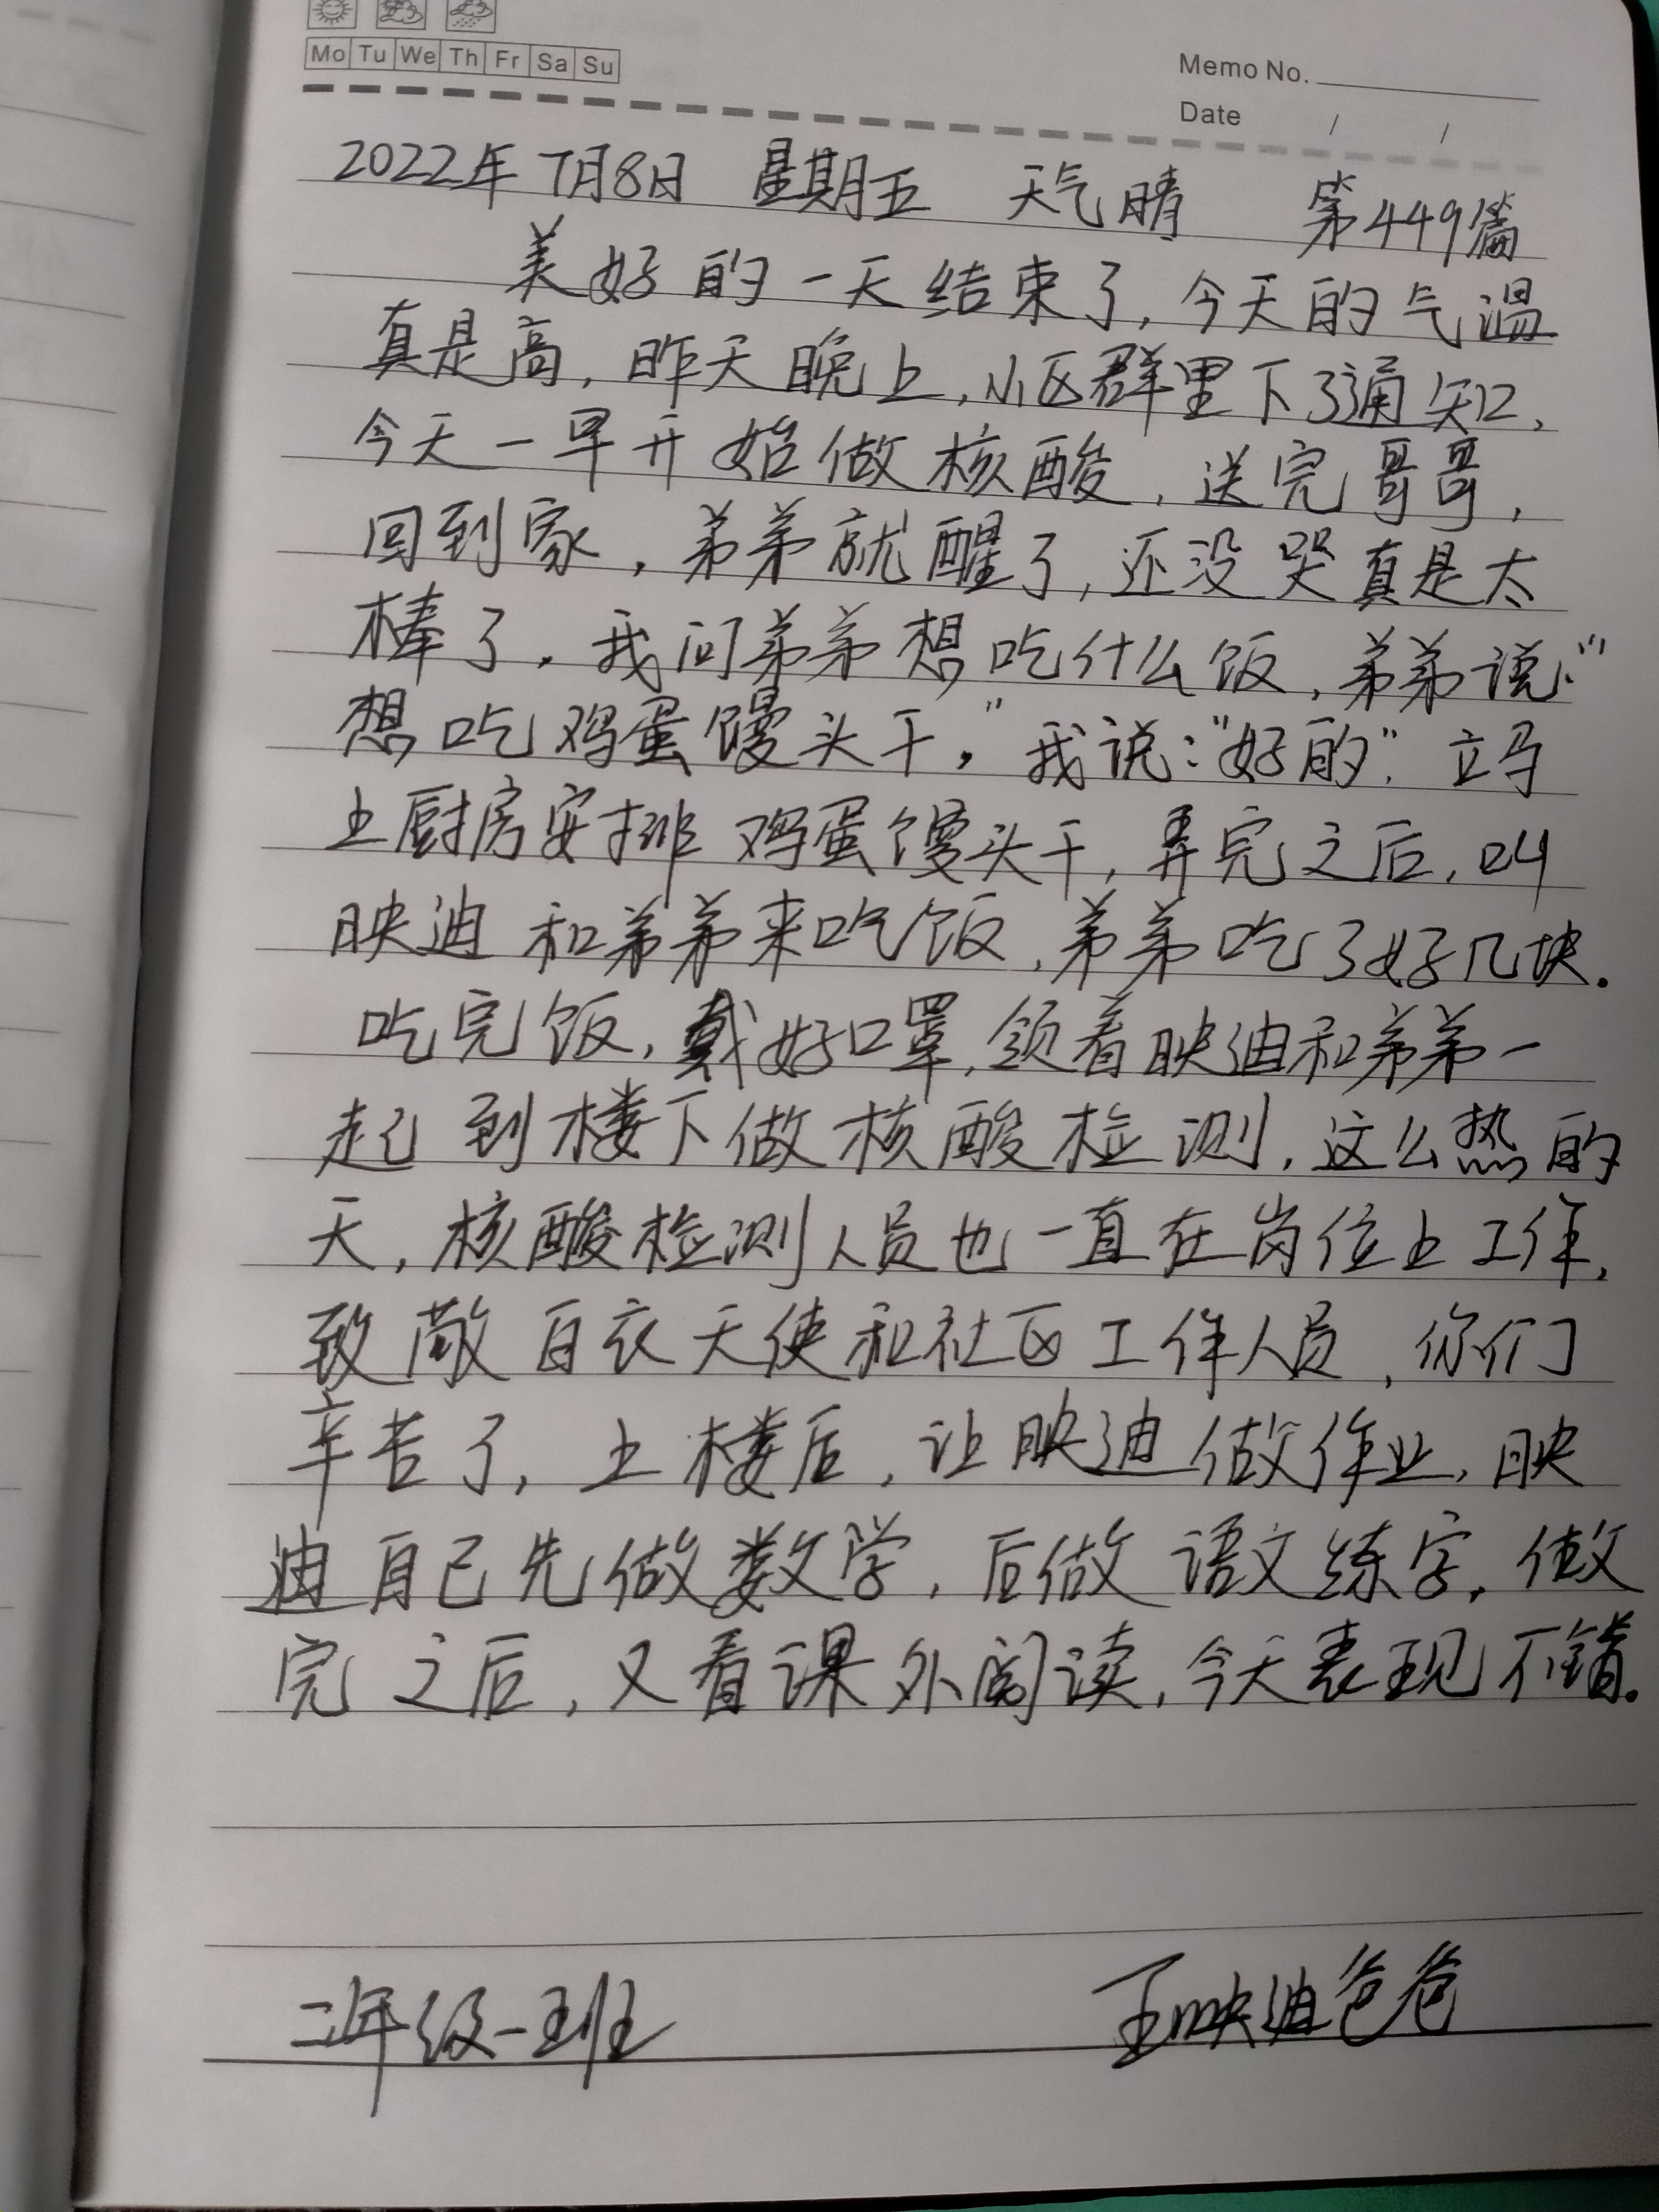 Mo Tu We Th Fr Sa Su
Memo No.
Date / /
2022年7月8日 星期五 天气晴 第449篇
美好的一天结束了,今天的气温
真是高,昨天晚上,小区群里下了通知,
今天一早开始做核酸,送完哥哥,
回到家,弟弟就醒了,还没哭真是太
棒了,我问弟弟想吃什么饭,弟弟说:“
想吃鸡蛋馒头干。”我说:“好的”.立马
上厨房安排鸡蛋馒头干,弄完之后,叫
映迪和弟弟来吃饭,弟弟吃了好几块.
吃完饭,戴好口罩,领着映迪和弟弟一
起到楼下做核酸检测,这么热的
天,核酸检测人员也一直在岗位上工作,
致敬白衣天使和社区工作人员,你们
辛苦了,上楼后,让映迪做作业,映
迪自己先做数学,后做语文练字.做
完之后,又看课外阅读,今天表现不错。
二年级一班
王映迪爸爸